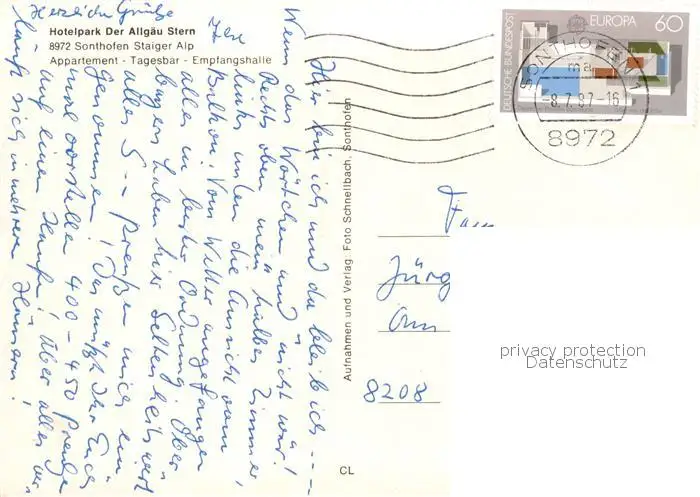 Herzliche Grüße
Hotelpark Der Allgäu Stern
8972 Sonthofen Staiger Alp
Appartement - Tagesbar - Empfangshalle
Hier bin ich und da bleib ich ---
Wenn das Wörtchen und nicht wär!
Rechts oben mein halbes Zimmer,
links unten die Aussicht vom
Balkon. Vom Wetter angefangen
alles in bester Ordnung. Ober-
bayern haben hier Seltenheitswert
alles S -- Preußen mich ein-
genommen! Das müßt Ihr Euch
mal vorstellen 400 - 450 Preußen
auf einen Haufen! Über alles ver-
läuft sich in mehreren Häusern!
Aufnahmen und Verlag: Foto Schnellbach, Sonthofen
CL
DEUTSCHE BUNDESPOST
EUROPA 60
SONTHOFEN 1
ma
-8.7.87-16
8972
Fam
Jürg
Am
8208
privacy protection
Datenschutz